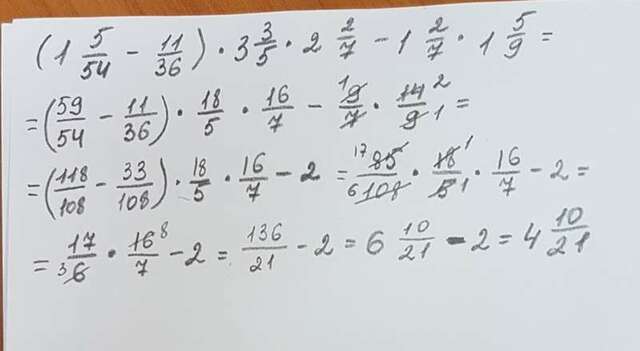 (1 5/54 - 11/36) · 3 3/5 · 2 2/7 - 1 2/7 · 1 5/9 =
= (59/54 - 11/36) · 18/5 · 16/7 - 9/7 · 14/9 = 1 2 1
= (118/108 - 33/108) · 18/5 · 16/7 - 2 = 85/108 · 18/5 · 16/7 - 2 = 17 6 1 1
= 17/6 · 16/7 - 2 = 136/21 - 2 = 6 10/21 - 2 = 4 10/21 3 8